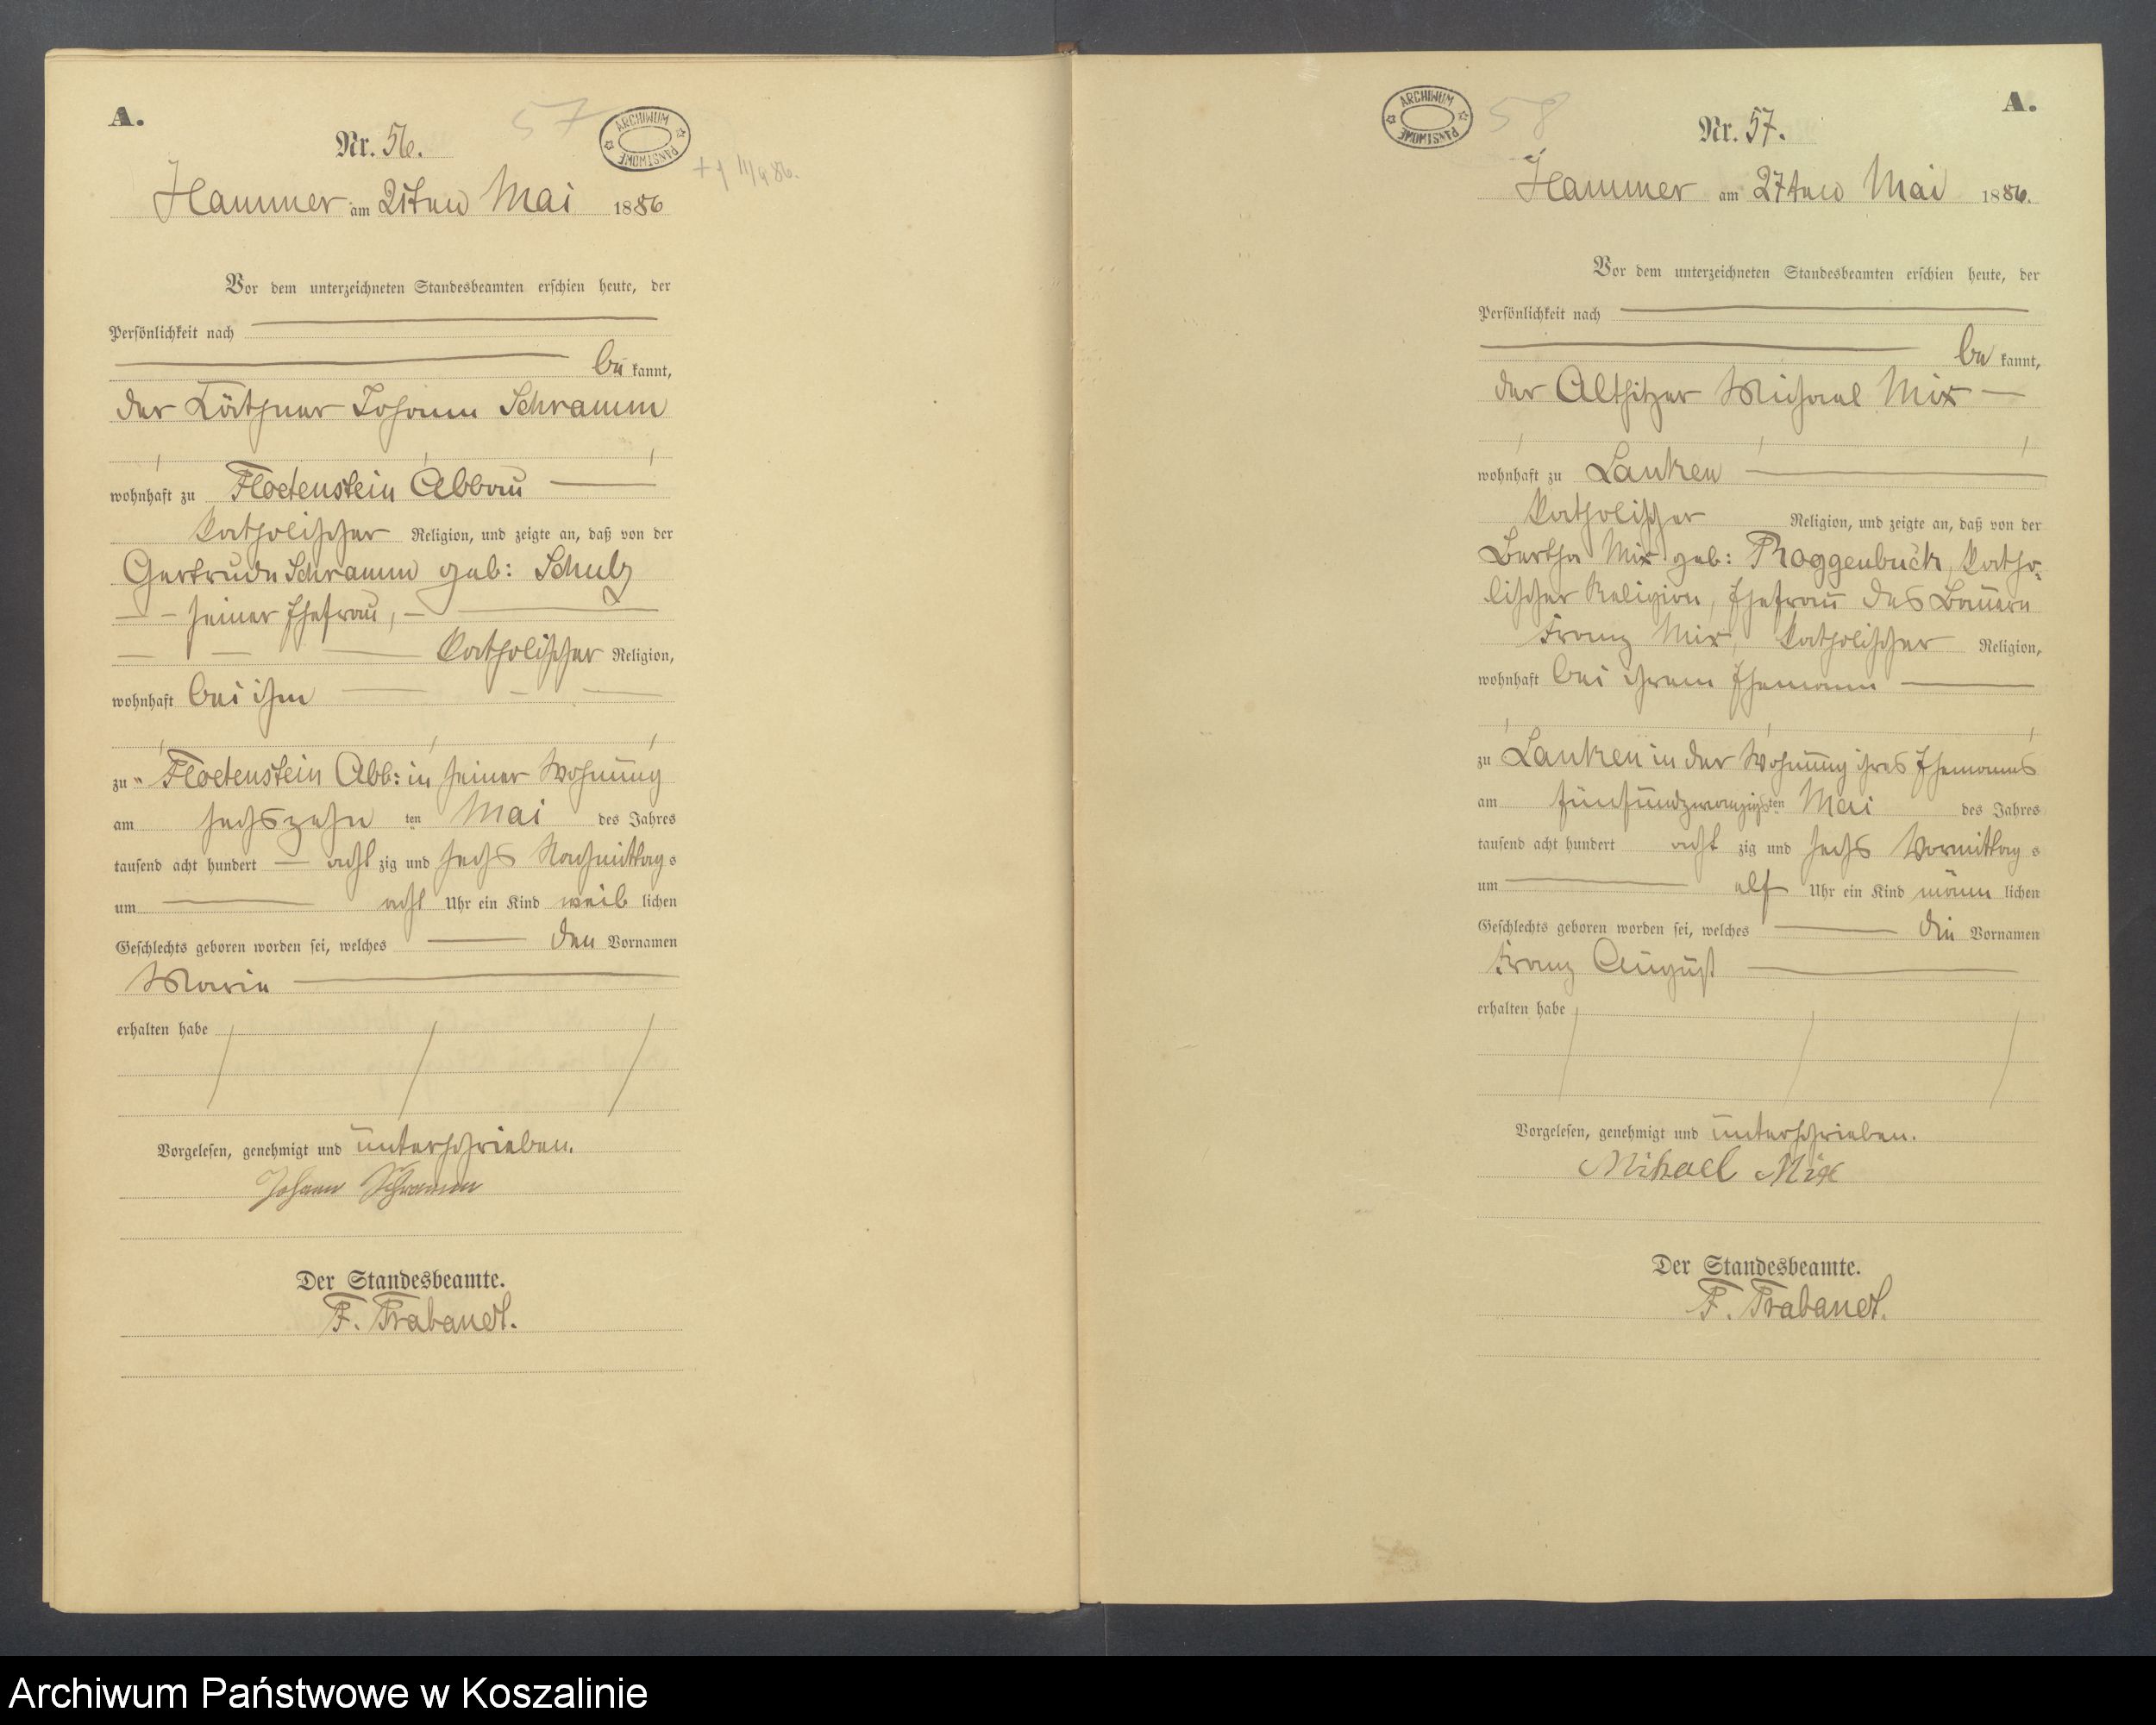 A.
Nr. 56.
57
ARCHIWUM PAŃSTWOWE
Hammer am 21ten Mai 1886
Vor dem unterzeichneten Standesbeamten erschien heute, der
Persönlichkeit nach
be kannt,
der Käthner Johann Schramm
wohnhaft zu Floetenstein Abbau
katholischer Religion, und zeigte an, daß von der
Gertrude Schramm geb: Schulz
seiner Ehefrau,
katholischer Religion,
wohnhaft bei ihm
zu Floetenstein Abb: in seiner Wohnung
am sechszehn ten Mai des Jahres
tausend acht hundert acht zig und sechs Nachmittag s
um acht Uhr ein Kind weib lichen
Geschlechts geboren worden sei, welches den Vornamen
Marie
erhalten habe
Vorgelesen, genehmigt und unterschrieben.
Johann Schramm
Der Standesbeamte.
F. Trabandt.
A.
ARCHIWUM PAŃSTWOWE
58
Nr. 57.
Hammer am 27ten Mai 1886.
Vor dem unterzeichneten Standesbeamten erschien heute, der
Persönlichkeit nach
be kannt,
der Altsitzer Michael Mix
wohnhaft zu Lanken
katholischer Religion, und zeigte an, daß von der
Bertha Mix geb: Roggenbuck, katho-
lischer Religion, Ehefrau des Bauern
Franz Mix, katholischer Religion,
wohnhaft bei ihrem Ehemann
zu Lanken in der Wohnung ihres Ehemannes
am fünfundzwanzigsten Mai des Jahres
tausend acht hundert acht zig und sechs Vormittag s
um elf Uhr ein Kind männ lichen
Geschlechts geboren worden sei, welches die Vornamen
Franz August
erhalten habe
Vorgelesen, genehmigt und unterschrieben.
Mihael Mix
Der Standesbeamte.
F. Trabandt.
Archiwum Państwowe w Koszalinie